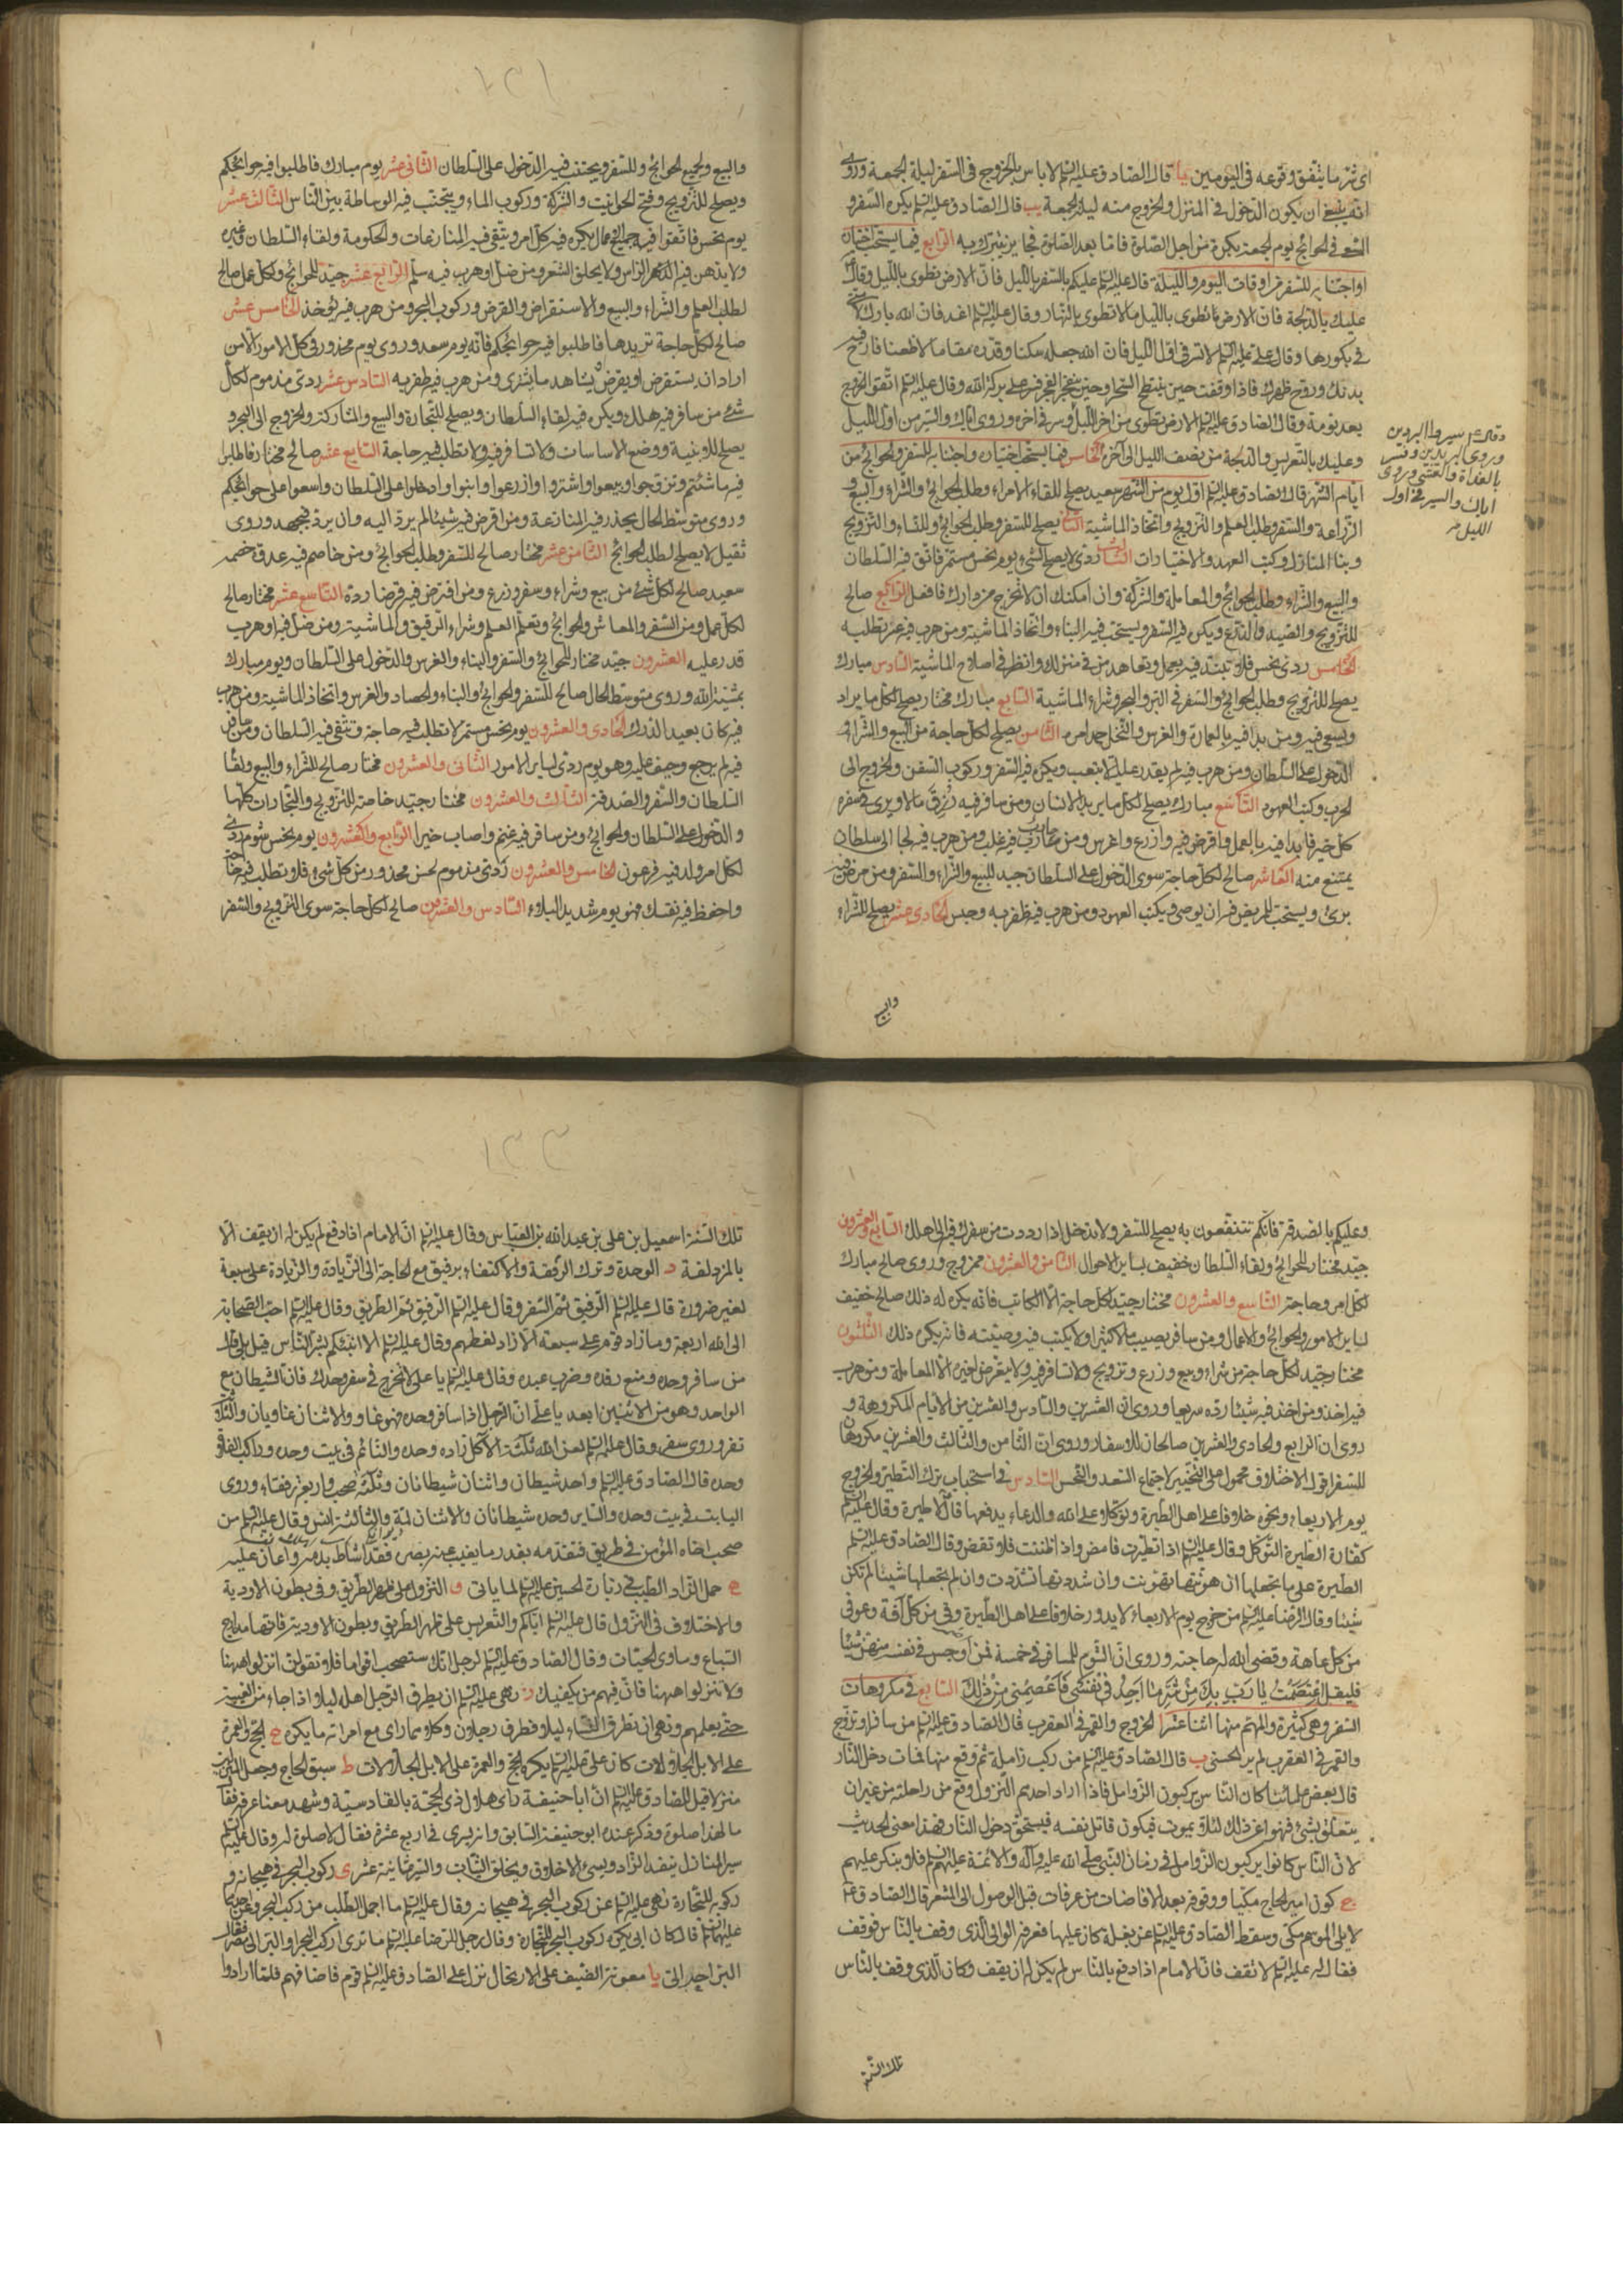 اى شئ ما يتفق وقوعه فى اليومين يا قال الصادق عليه السلم لا باس بالخروج فى السفر ليلة الجمعة وروى
انه ينبغى ان يكون الدخول فى المنزل والخروج منه ليلة الجمعة يب قال الصادق عليه السلم يكره السفر و
السعى فى الحوائج يوم الجمعة بكرة من اجل الصلوة فاما بعد الصلوة فجايز يتبرك به الرابع فيما يستحب اختيان
او اجتنابه للسفر من اوقات اليوم والليلة قال عليه السلم عليكم بالسفر بالليل فان الارض تطوى بالليل وقال
عليك بالدلجة فان الارض تطوى بالليل ما لا تطوى بالنهار وقال عليه السلم اغد فان الله بارك لامتى
فى بكورها وقال على عليه السلم لا تسر فى اول الليل فان الله جعله سكنا وقدره مقاما لا ظعنا فارح فيه
بدنك وروح ظهرك فاذا وقفت حين ينبطح السحر او حين ينفجر الفجر فسر على بركة الله وقال عليه السلم اتقوا الخروج
بعد نومة وقال الصادق عليه السلم الارض تطوى من اخر الليل وسر فى اخره وروى اياك والسير من اول الليل
وعليك بالتعريس والدلجة من نصف الليل الى آخره الخامس فيما يستحب اختياره واجتنابه للسفر والحوائج من
ايام الشهر قال الصادق عليه السلم اول يوم من الشهر سعيد يصلح للقاء الامراء وطلب الحوائج والشراء والبيع و
الزراعة والسفر وطلب العلم والتزويج واتخاذ الماشية الثانى يصلح للسفر وطلب الحوائج وللقاء والتزويج
وبناء المنازل وكتب العهد والاختيارات الثالث ردى لا يصلح لشئ يوم نحس مستمر فاتق فيه السلطان
والبيع والشراء وطلب الحوائج والمعاملة والشركة وان امكنك ان لا تخرج من دارك فافعل الرابع صالح
للتزويج والصيد والزرع ويكره فيه السفر ويستحب فيه البناء واتخاذ الماشية ومن هرب فيه عسر تطلبه
الخامس ردى نحس فلا تبتدى فيه بعمل وتعاهد من فى منزلك وانظر فى اصلاح الماشية السادس مبارك
يصلح للتزويج وطلب الحوائج والسفر فى البر والبحر وشراء الماشية السابع مبارك مختار يصلح لكل ما يراد
ويسعى فيه ومن بدا فيه بالعمارة والغرس والنخل حمد امره الثامن يصلح لكل حاجة من البيع والشراء و
الدخول على السلطان ومن هرب فيه لم يقدر عليه الا بتعب ويكره فيه السفر وركوب السفن والخروج الى
الحرب وكتب العهود التاسع مبارك يصلح لكل ما يريد الانسان ومن سافر فيه رزق مالا ويرى فى سفره
كل خير فابدا فيه بالعمل واقرض فيه وازرع واغرس ومن حارب فيه غلب ومن هرب فيه لجا الى سلطان
يمتنع منه العاشر صالح لكل حاجة سوى الدخول على السلطان جيد للبيع والشراء والسفر ومن مرض فيه
برئ ويستحب للمريض فيه ان يوصى ويكتب العهود ومن هرب فيه ظفر به وحبس الحادى عشر يصلح للشراء
وقال ع م سيروا البردين
وروى ابردين وفسر
بالغداة والعشى وروى
اياك والسير فى اول
الليل
والبيع
والبيع ولجميع الحوائج وللسفر ويجتنب فيه الدخول على السلطان الثانى عشر يوم مبارك فاطلبوا فيه حوائجكم
ويصلح للتزويج وفتح الحوانيت والشركة وركوب الماء ويجتنب فيه الوساطة بين الناس الثالث عشر
يوم نحس فاتقوا فيه جميع الاعمال يكره فيه كل امر ويتقى فيه المنازعات والحكومة ولقاء السلطان وغيره
ولا يدهن فيه الراس ولا يحلق الشعر ومن ضل او هرب فيه سلم الرابع عشر جيد للحوائج ولكل عمل صالح
لطلب العلم والشراء والبيع والاستقراض والقرض وركوب البحر ومن هرب فيه يؤخذ الخامس عشر
صالح لكل حاجة تريدها فاطلبوا فيه حوائجكم فانه يوم سعد وروى يوم محذور فى كل الامور الا من
اراد ان يستقرض او يقرض يشاهد ما يشترى ومن هرب فيه ظفر به السادس عشر ردى مذموم لكل
شئ من سافر فيه هلك ويكره فيه لقاء السلطان ويصلح للتجارة والبيع والمشاركة والخروج الى البحر و
يصلح للابنية ووضع الاساسات ولا تسافر فيه ولا تطلب فيه حاجة السابع عشر صالح مختار فاطلبوا
فيه ما شئتم وتزوجوا وبيعوا واشتروا وازرعوا وابنوا وادخلوا على السلطان واسعوا على حوائجكم
وروى متوسط الحال يحذر فيه المنازعة ومن اقرض فيه شيئا لم يرد اليه وان يرد فبجهد وروى
ثقيل لا يصلح لطلب الحوائج الثامن عشر مختار صالح للسفر وطلب الحوائج ومن خاصم فيه عدو خصمه
سعيد صالح لكل شئ من بيع وشراء وسفر وزرع ومن اقترض فيه قرضا رده التاسع عشر مختار صالح
لكل عمل ومن السفر والمعاش والحوائج وتعلم العلم وشراء الرقيق والماشية ومن ضل فيه او هرب
قدر عليه العشرون جيد مختار للحوائج والسفر والبناء والغرس والدخول على السلطان ويوم مبارك
بمشية الله وروى متوسط الحال صالح للسفر والحوائج والبناء والحصاد والغرس واتخاذ الماشية ومن هرب
فيه كان بعيد الدرك الحادى والعشرون يوم نحس مستمر لا تطلب فيه حاجة وتتقى فيه السلطان ومن سافر
فيه لم يرجع وخيف عليه وهو يوم ردى لساير الامور الثانى والعشرون مختار صالح للشراء والبيع ولقاء
السلطان والسفر والصدقة الثالث والعشرون مختار جيد خاصة للتزويج والتجارات كلها
والدخول على السلطان والحوائج ومن سافر فيه غنم واصاب خيرا الرابع والعشرون يوم نحس شوم ردى
لكل امر ولد فيه فرعون الخامس والعشرون ردى مذموم نحس محذور من كل شئ فلا تطلب فيه حاجة
واحفظ فيه نفسك فهو يوم شديد البلاء السادس والعشرون صالح لكل حاجة سوى التزويج والسفر
وعليكم بالصدقة فانكم تنتفعون به يصلح للسفر ولا تدخل اذا رددت من سفرك فيه الى اهلك السابع والعشرون
جيد مختار للحوائج ولقاء السلطان خفيف لساير الاحوال الثامن والعشرون ممزوج وروى صالح مبارك
لكل امر وحاجة التاسع والعشرون مختار جيد لكل حاجة الا الكاتب فانه يكره له ذلك صالح خفيف
لساير الامور والحوائج والاعمال ومن سافر يصيب مالا كثيرا ولا يكتب فيه وصيته فانه يكره ذلك الثلثون
مختار جيد لكل حاجة من شراء وبيع وزرع وتزويج ولا تسافر فيه ولا يتعرض لغيره الا المعاملة ومن هرب
فيه اخذ ومن اخذ فيه شيئا رده سريعا وروى ان العشرين والسادس والعشرين من الايام المكروهة و
روى ان الرابع والحادى والعشرين صالحان للاسفار وروى ان الثامن والثالث والعشرين مكروهان
للسفر اقول الاختلاف محمول على التخيير لاجتماع السعد والنحس السادس فى استحباب ترك التطير والخروج
يوم الاربعاء ونحوه خلافا على اهل الطيرة وتوكلا على الله والدعاء يدفعها قال لا طيرة وقال عليه السلم
كفارة الطيرة التوكل وقال عليه السلم اذا تطيرت فامض واذا ظننت فلا تقض وقال الصادق عليه السلم
الطيرة على ما تجعلها ان هونتها تهونت وان شددتها تشددت وان لم تجعلها شيئا لم تكن
شيئا وقال الرضا عليه السلم من خرج يوم الاربعاء لا يدور خلافا على اهل الطيرة وقى من كل آفة وعوفى
من كل عاهة وقضى الله له حاجته وروى ان الشوم للمسافر فى خمسة فمن اوجس فى نفسه منهن شيئا
فليقل اعتصمت بك يا رب من شر ما اجد فى نفسى فاعصمنى من ذلك السابع فى مكروهات
السفر وهى كثيرة والمهم منها اثنا عشر ا الخروج والقمر فى العقرب قال الصادق عليه السلم من سافر او تزوج
والقمر فى العقرب لم ير الحسنى ب قال الصادق عليه السلم من ركب زاملة ثم وقع منها فمات دخل النار
قال بعض علمائنا كان الناس يركبون الزوامل فاذا اراد احدهم النزول وقع من راحلته من غير ان
يتعلق بشئ فنهوا عن ذلك لئلا يموت فيكون قاتل نفسه فيستحق دخول النار فهذا معنى الحديث
لان الناس كانوا يركبون الزوامل فى زمان النبى صلى الله عليه وآله والائمة عليهم السلم فلا ينكر عليهم
ج كون امير الحاج مكيا ووقوفه بعد الافاضات من عرفات قبل الوصول الى المشعر قال الصادق ع
لا يلى الموسم مكى وسقط الصادق عليه السلم عن بغلة كان عليها فعرفه الوالى الذى وقف بالناس فوقف
فقال له عليه السلم لا تقف فان الامام اذا دفع بالناس لم يكن له ان يقف وكان الذى وقف بالناس
تلك السنة
تلك السنة اسمعيل بن على بن عبد الله بن العباس وقال عليه السلم ان الامام اذا دفع لم يكن له ان يقف الا
بالمزدلفة د الوحدة وترك الرفقة والاكتفاء برفيق مع الحاجة الى الزيادة والزيادة على سبعة
لغير ضرورة قال عليه السلم الرفيق ثم السفر وقال عليه السلم الرفيق ثم الطريق وقال عليه السلم احب الصحابة
الى الله اربعة وما زاد قوم على سبعة الا زاد لغطهم وقال عليه السلم الا انبئكم بشر الناس قيل بلى قال
من سافر وحده ومنع رفده وضرب عبده وقال عليه السلم يا على لا تخرج فى سفر وحدك فان الشيطان مع
الواحد وهو من الاثنين ابعد يا على ان الرجل اذا سافر وحده فهو غاو والاثنان غاويان والثلاثة
نفر وروى سفر وقال عليه السلم لعن الله ثلثة الآكل زاده وحده والنائم فى بيت وحده وراكب الفلاة
وحده قال الصادق عليه السلم واحد شيطان واثنان شيطانان وثلثة صحب واربعة رفقاء وروى
البايت فى بيت وحده والساير وحده شيطانان والاثنان لمة والثلثة انس وقال عليه السلم من
صحب اخاه المؤمن فى طريق فتقدمه بقدر ما يغيب عنه بصره فقد اشاط بدمه واعان عليه
ه حمل الزاد الطيب فى زيارة الحسين عليه السلم لما ياتى و النزول على ظهر الطريق وفى بطون الاودية
والاختلاف فى النزول قال عليه السلم اياكم والتعريس على ظهر الطريق وبطون الاودية فانها مدارج
السباع وماوى الحيات وقال الصادق عليه السلم لرجل انك ستصحب اقواما فلا تقولن انزلوا ههنا
ولا تنزلوا ههنا فان فيهم من يكفيك ز نهى عليه السلم ان يطرق الرجل اهله ليلا اذا جاء من الغيبة
حتى يعلمهم ونهى ان تطرق النساء ليلا فطرق رجلان وكلاهما راى مع امراته ما يكره ح الحج والعمرة
على الابل الجلالات كان على عليه السلم يكره الحج والعمرة على الابل الجلالات ط سبق الحاج وجعل المنزلين
منزلا قيل للصادق عليه السلم ان ابا حنيفة راى هلال ذى الحجة بالقادسية وشهد معنا عرفة فقال
ما لهذا صلوة وذكر عنده ابو حنيفة السابق وانه يسرى فى اربع عشرة فقال لا صلوة له وقال عليه السلم
سير المنازل ينفد الزاد ويسئ الاخلاق ويخلق الثياب والسير ثمانية عشر ى ركوب البحر فى هيجانه و
ركوبه للتجارة نهى عليه السلم عن ركوب البحر فى هيجانه وقال عليه السلم ما اجمل الطلب من ركب البحر
عليهما السلم قال كان ابى يكره ركوب البحر للتجارة وقال رجل للرضا عليه السلم ما ترى اركب البحر او البر الى مصر فقال
البر احب الى يا معونة الضيف على الارتحال نزل على الصادق عليه السلم قوم فاضافهم فلما ارادوا